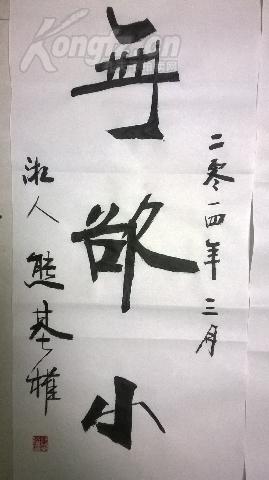 二零一四年三月
無欲小
湘人熊基權